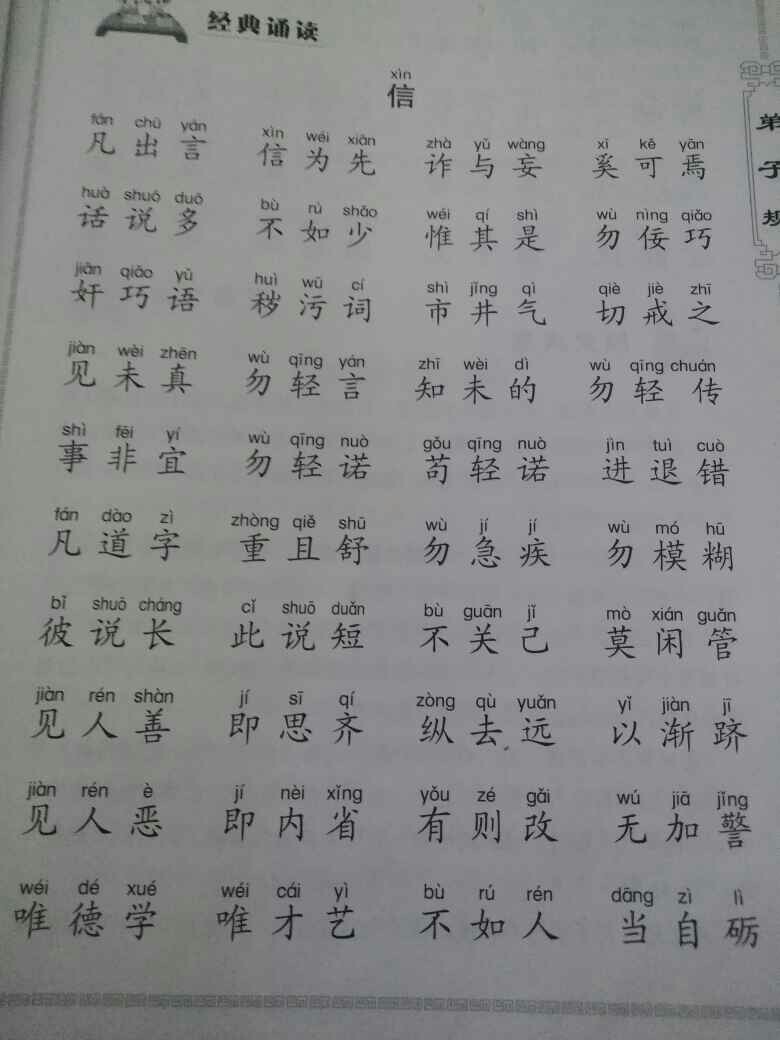 经典诵读
xìn
信
fán chū yán xìn wéi xiān zhà yǔ wàng xī kě yān
凡出言 信为先 诈与妄 奚可焉
huà shuō duō bù rú shǎo wéi qí shì wù nìng qiǎo
话说多 不如少 惟其是 勿佞巧
jiān qiǎo yǔ huì wū cí shì jǐng qì qiè jiè zhī
奸巧语 秽污词 市井气 切戒之
jiàn wèi zhēn wù qīng yán zhī wèi dì wù qīng chuán
见未真 勿轻言 知未的 勿轻传
shì fēi yí wù qīng nuò gǒu qīng nuò jìn tuì cuò
事非宜 勿轻诺 苟轻诺 进退错
fán dào zì zhòng qiě shū wù jí jí wù mó hū
凡道字 重且舒 勿急疾 勿模糊
bǐ shuō cháng cǐ shuō duǎn bù guān jǐ mò xián guǎn
彼说长 此说短 不关己 莫闲管
jiàn rén shàn jí sī qí zòng qù yuǎn yǐ jiàn jī
见人善 即思齐 纵去远 以渐跻
jiàn rén è jí nèi xǐng yǒu zé gǎi wú jiā jǐng
见人恶 即内省 有则改 无加警
wéi dé xué wéi cái yì bù rú rén dāng zì lì
唯德学 唯才艺 不如人 当自砺
弟子规